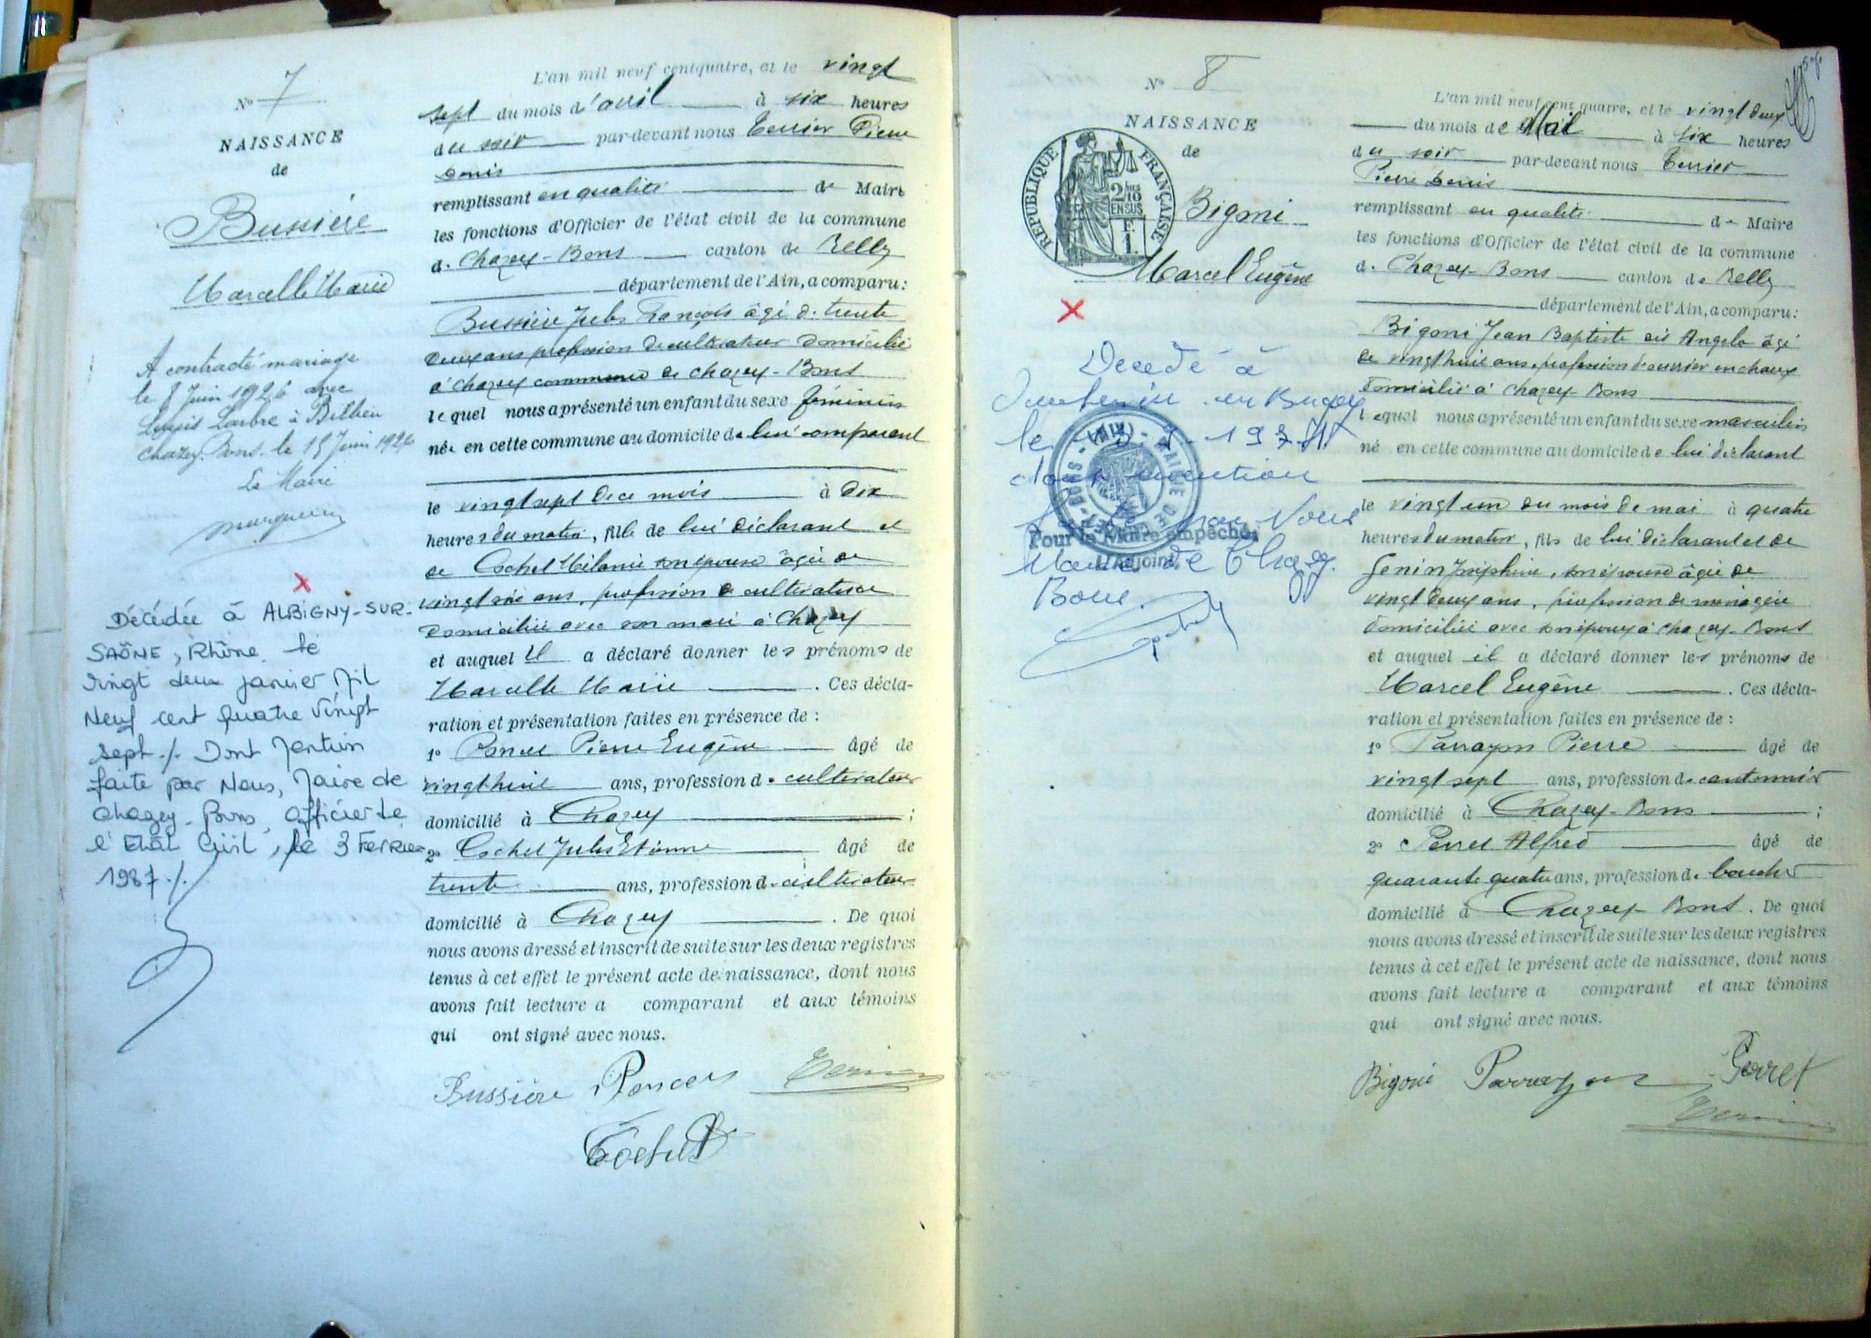 N° 7
NAISSANCE
de
Bussière
Marcelle Marie
A contracté mariage
le 8 Juin 1926 avec
Louis Larbre à
Chazey-Bons le 15 Juin 1926
Le Maire
Décédée à ALBIGNY-SUR-
SAÔNE, Rhône le
Vingt deux janvier Mil
Neuf cent quatre vingt
sept ./. Dont Mention
faite par Nous, Maire de
Chazey-Bons, officier de
l'Etat Civil, le 3 Février
1987 ./.
L'an mil neuf cent quatre, et le vingt
sept du mois d'avril à six heures
du soir par-devant nous Terrier Pierre
Denis
remplissant en qualité de Maire
les fonctions d'Officier de l'état civil de la commune
de Chazey-Bons canton de Belley
département de l'Ain, a comparu :
Bussière Jules François âgé de trente
deux ans profession de cultivateur domicilié
à Chazey commune de Chazey-Bons
lequel nous a présenté un enfant du sexe féminin
née en cette commune au domicile de lui comparant
le vingt sept de ce mois à dix
heures du matin, fille de lui déclarant et
de Cochet Mélanie son épouse âgée de
vingt six ans, profession de cultivatrice
domiciliée avec son mari à Chazey
et auquel il a déclaré donner les prénoms de
Marcelle Marie . Ces décla-
ration et présentation faites en présence de :
1° Poncet Pierre Eugène âgé de
vingt huit ans, profession de cultivateur
domicilié à Chazey ;
2° Cochet Jules Etienne âgé de
trente ans, profession de cultivateur
domicilié à Chazey . De quoi
nous avons dressé et inscrit de suite sur les deux registres
tenus à cet effet le présent acte de naissance, dont nous
avons fait lecture a comparant et aux témoins
qui ont signé avec nous.
Bussière Poncet Terrier
Cochet
N° 8
NAISSANCE
de
RÉPUBLIQUE FRANÇAISE
2/10 EN SUS
F. 1.
Bigoni
Marcel Eugène
Décédé à
en Bugey
le
dont mention
par Nous
Pour le Maire empêché,
L'Adjoint
Maire de Chazey
Bons
L'an mil neuf cent quatre, et le vingt deux
du mois de Mai à six heures
du soir par-devant nous Terrier
Pierre Denis
remplissant en qualité de Maire
les fonctions d'Officier de l'état civil de la commune
de Chazey-Bons canton de Belley
département de l'Ain, a comparu :
Bigoni Jean Baptiste dit Angelo âgé
de vingt huit ans, profession d'ouvrier en chaux
domicilié à Chazey Bons
lequel nous a présenté un enfant du sexe masculin
né en cette commune au domicile de lui déclarant
le vingt un du mois de mai à quatre
heures du matin, fils de lui déclarant et de
Genin Joséphine, son épouse âgée de
vingt deux ans, profession de ménagère
domiciliée avec son époux à Chazey-Bons
et auquel il a déclaré donner les prénoms de
Marcel Eugène . Ces décla-
ration et présentation faites en présence de :
1° Parrayon Pierre âgé de
vingt sept ans, profession de cantonnier
domicilié à Chazey-Bons ;
2° Perret Alfred âgé de
quarante quatre ans, profession de boucher
domicilié à Chazey-Bons . De quoi
nous avons dressé et inscrit de suite sur les deux registres
tenus à cet effet le présent acte de naissance, dont nous
avons fait lecture a comparant et aux témoins
qui ont signé avec nous.
Bigoni Parrayon Perret
Terrier